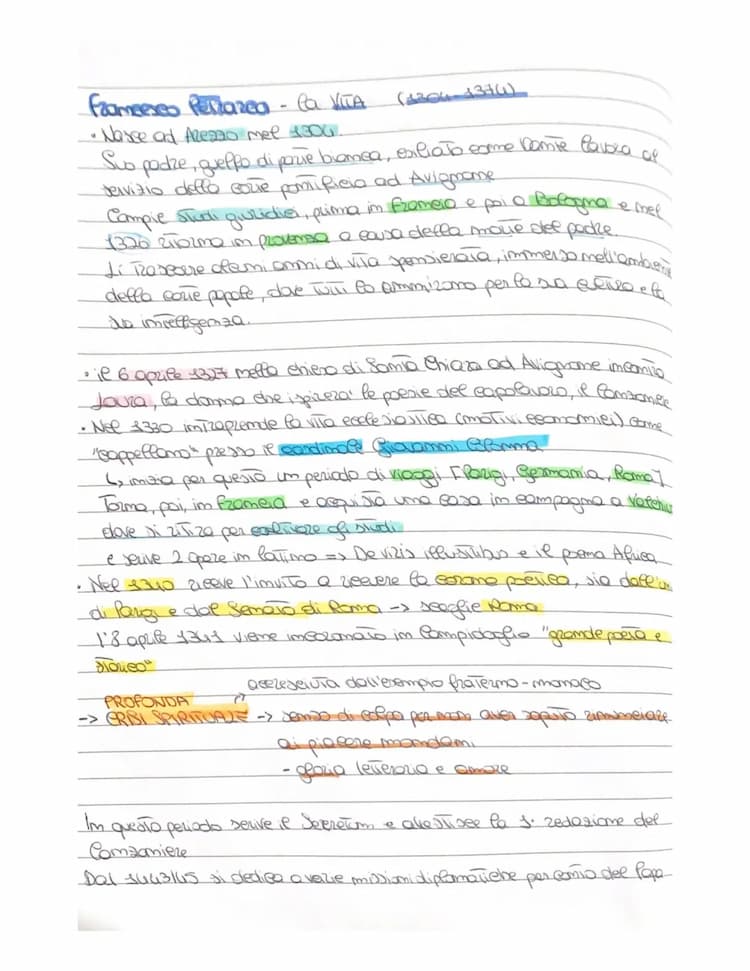 Francesco Petrarca - la VITA (1304-1374)
• Nasce ad Arezzo nel 1304.
Suo padre, guelfo di parte bianca, esiliato come Dante lavora al
servizio della corte pontificia ad Avignone
Compie studi giuridici, prima in Francia e poi a Bologna e nel
1326 ritorna in provenza a causa della morte del padre.
Lì trascorre alcuni anni di vita spensierata, immerso nell'ambiente
della corte papale, dove tutti lo ammirano per la sua cultura e la
sua intelligenza.
• il 6 aprile 1327 nella chiesa di Santa Chiara ad Avignone incontra
Laura, la donna che ispirerà le poesie del capolavoro, il Canzoniere
• Nel 1330 intraprende la vita ecclesiastica (motivi economici) come
"cappellano" presso il cardinale Giovanni Colonna
↳ inizia per questo un periodo di viaggi [Parigi, Germania, Roma]
Torna, poi, in Francia e acquista una casa in campagna a
dove si ritira per coltivare gli studi
e scrive 2 opere in latino => De viris illustribus e il poema Africa
• Nel 1340 riceve l'invito a ricevere la corona poetica, sia
di Parigi e dal Senato di Roma -> sceglie Roma
l'8 aprile 1341 viene incoronato in Campidoglio "grande poeta e
storico"
accresciuta dall'esempio fraterno - monaco
PROFONDA
-> CRISI SPIRITUALE -> senso di colpa per non aver saputo rinunciare
ai piacere mondani
- gloria letteraria e amore
In questo periodo scrive il Secretum e allestisce la 1° redazione del
Canzoniere
Dal 1443/45 si dedica a varie missioni diplomatiche per conto del Papa